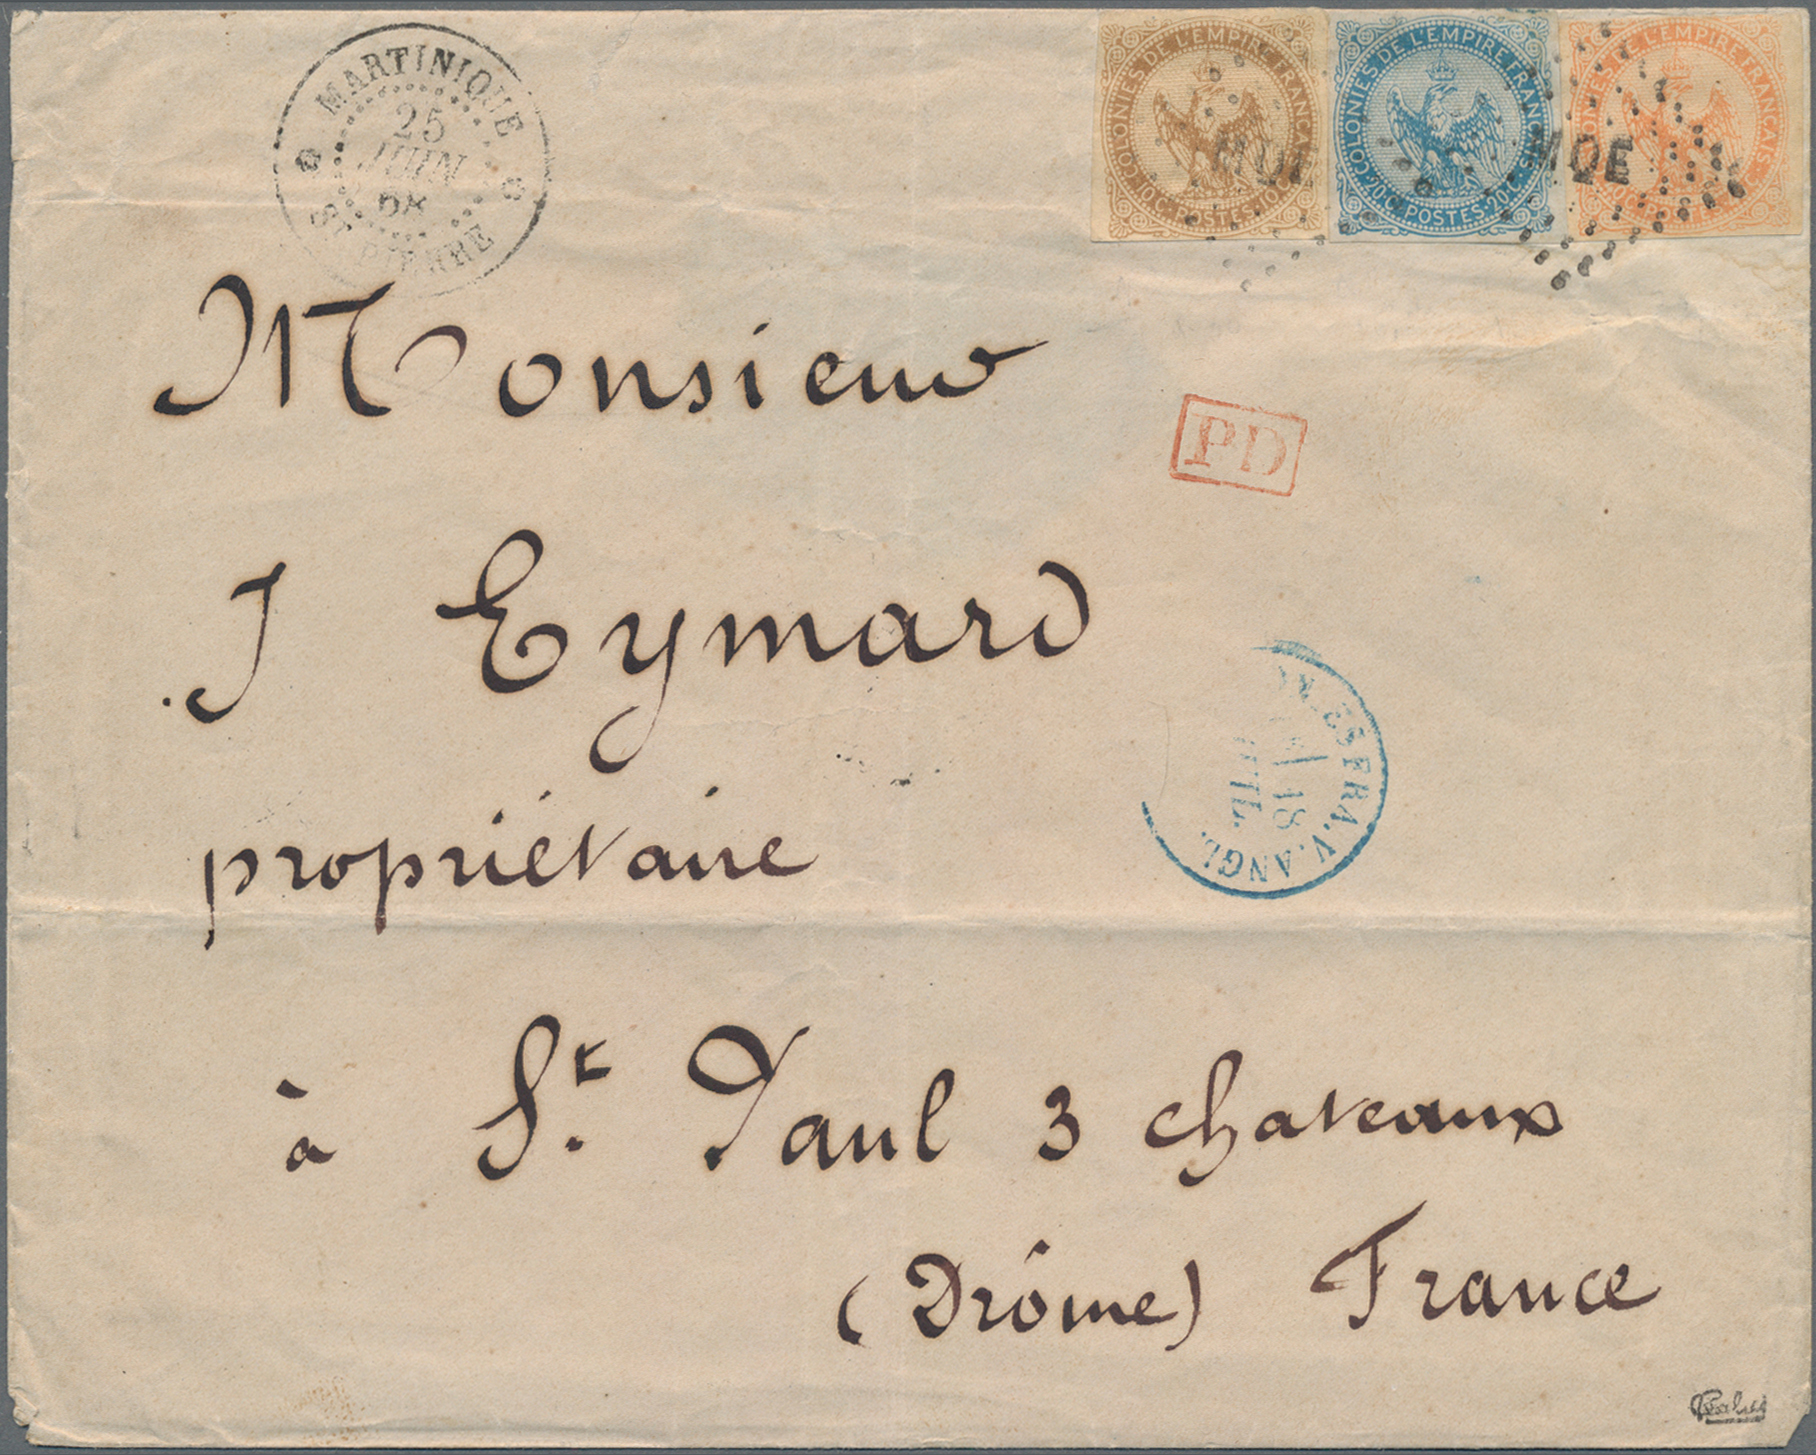 MARTINIQUE
25
JUIN
68
ST PIERRE
COLONIES DE L'EMPIRE FRANÇAIS
10 C. POSTES. 10 C.
COLONIES DE L'EMPIRE FRANÇAIS
20 C. POSTES. 20 C.
COLONIES DE L'EMPIRE FRANÇAIS
MQE
MQE
Monsieur
PD
J Eymard
ESERA.V.ANGL.
18
propriétaire
à St. Paul 3 chateaux
(Drôme) France